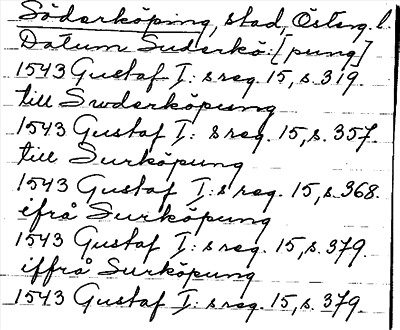 Söderköping, stad, Österg. l.
Datum Suderkö:[pung]
1543 Gustaf I: s reg. 15, s. 319.
till Swderköpung
1543 Gustaf I: s reg. 15, s. 357.
till Surköpung
1543 Gustaf I: s reg. 15, s. 368.
ifrå Surköpung
1543 Gustaf I: s reg. 15, s. 379.
iffrå Surköpung
1543 Gustaf I: s reg. 15, s. 379.